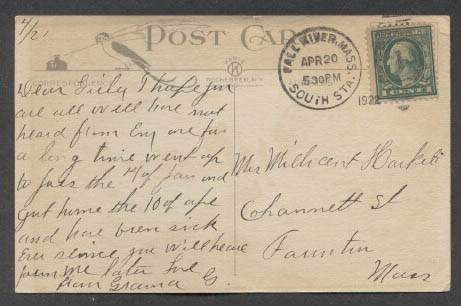 4/21
POST CARD
CORRESPONDENCE
ROCHESTER, N.Y.
FALL RIVER, MASS.
APR 20
530PM
SOUTH STA.
1922
1 CENT 1
Dear I hope you
are all well have not
heard from Eny one for
a long time went up
to the 4 of Jan and
got home the 10 of
and have been sick
Ever since you will hear
from me later
from Grama
Mrs Millicent
Cohannett St
Taunton
Mass